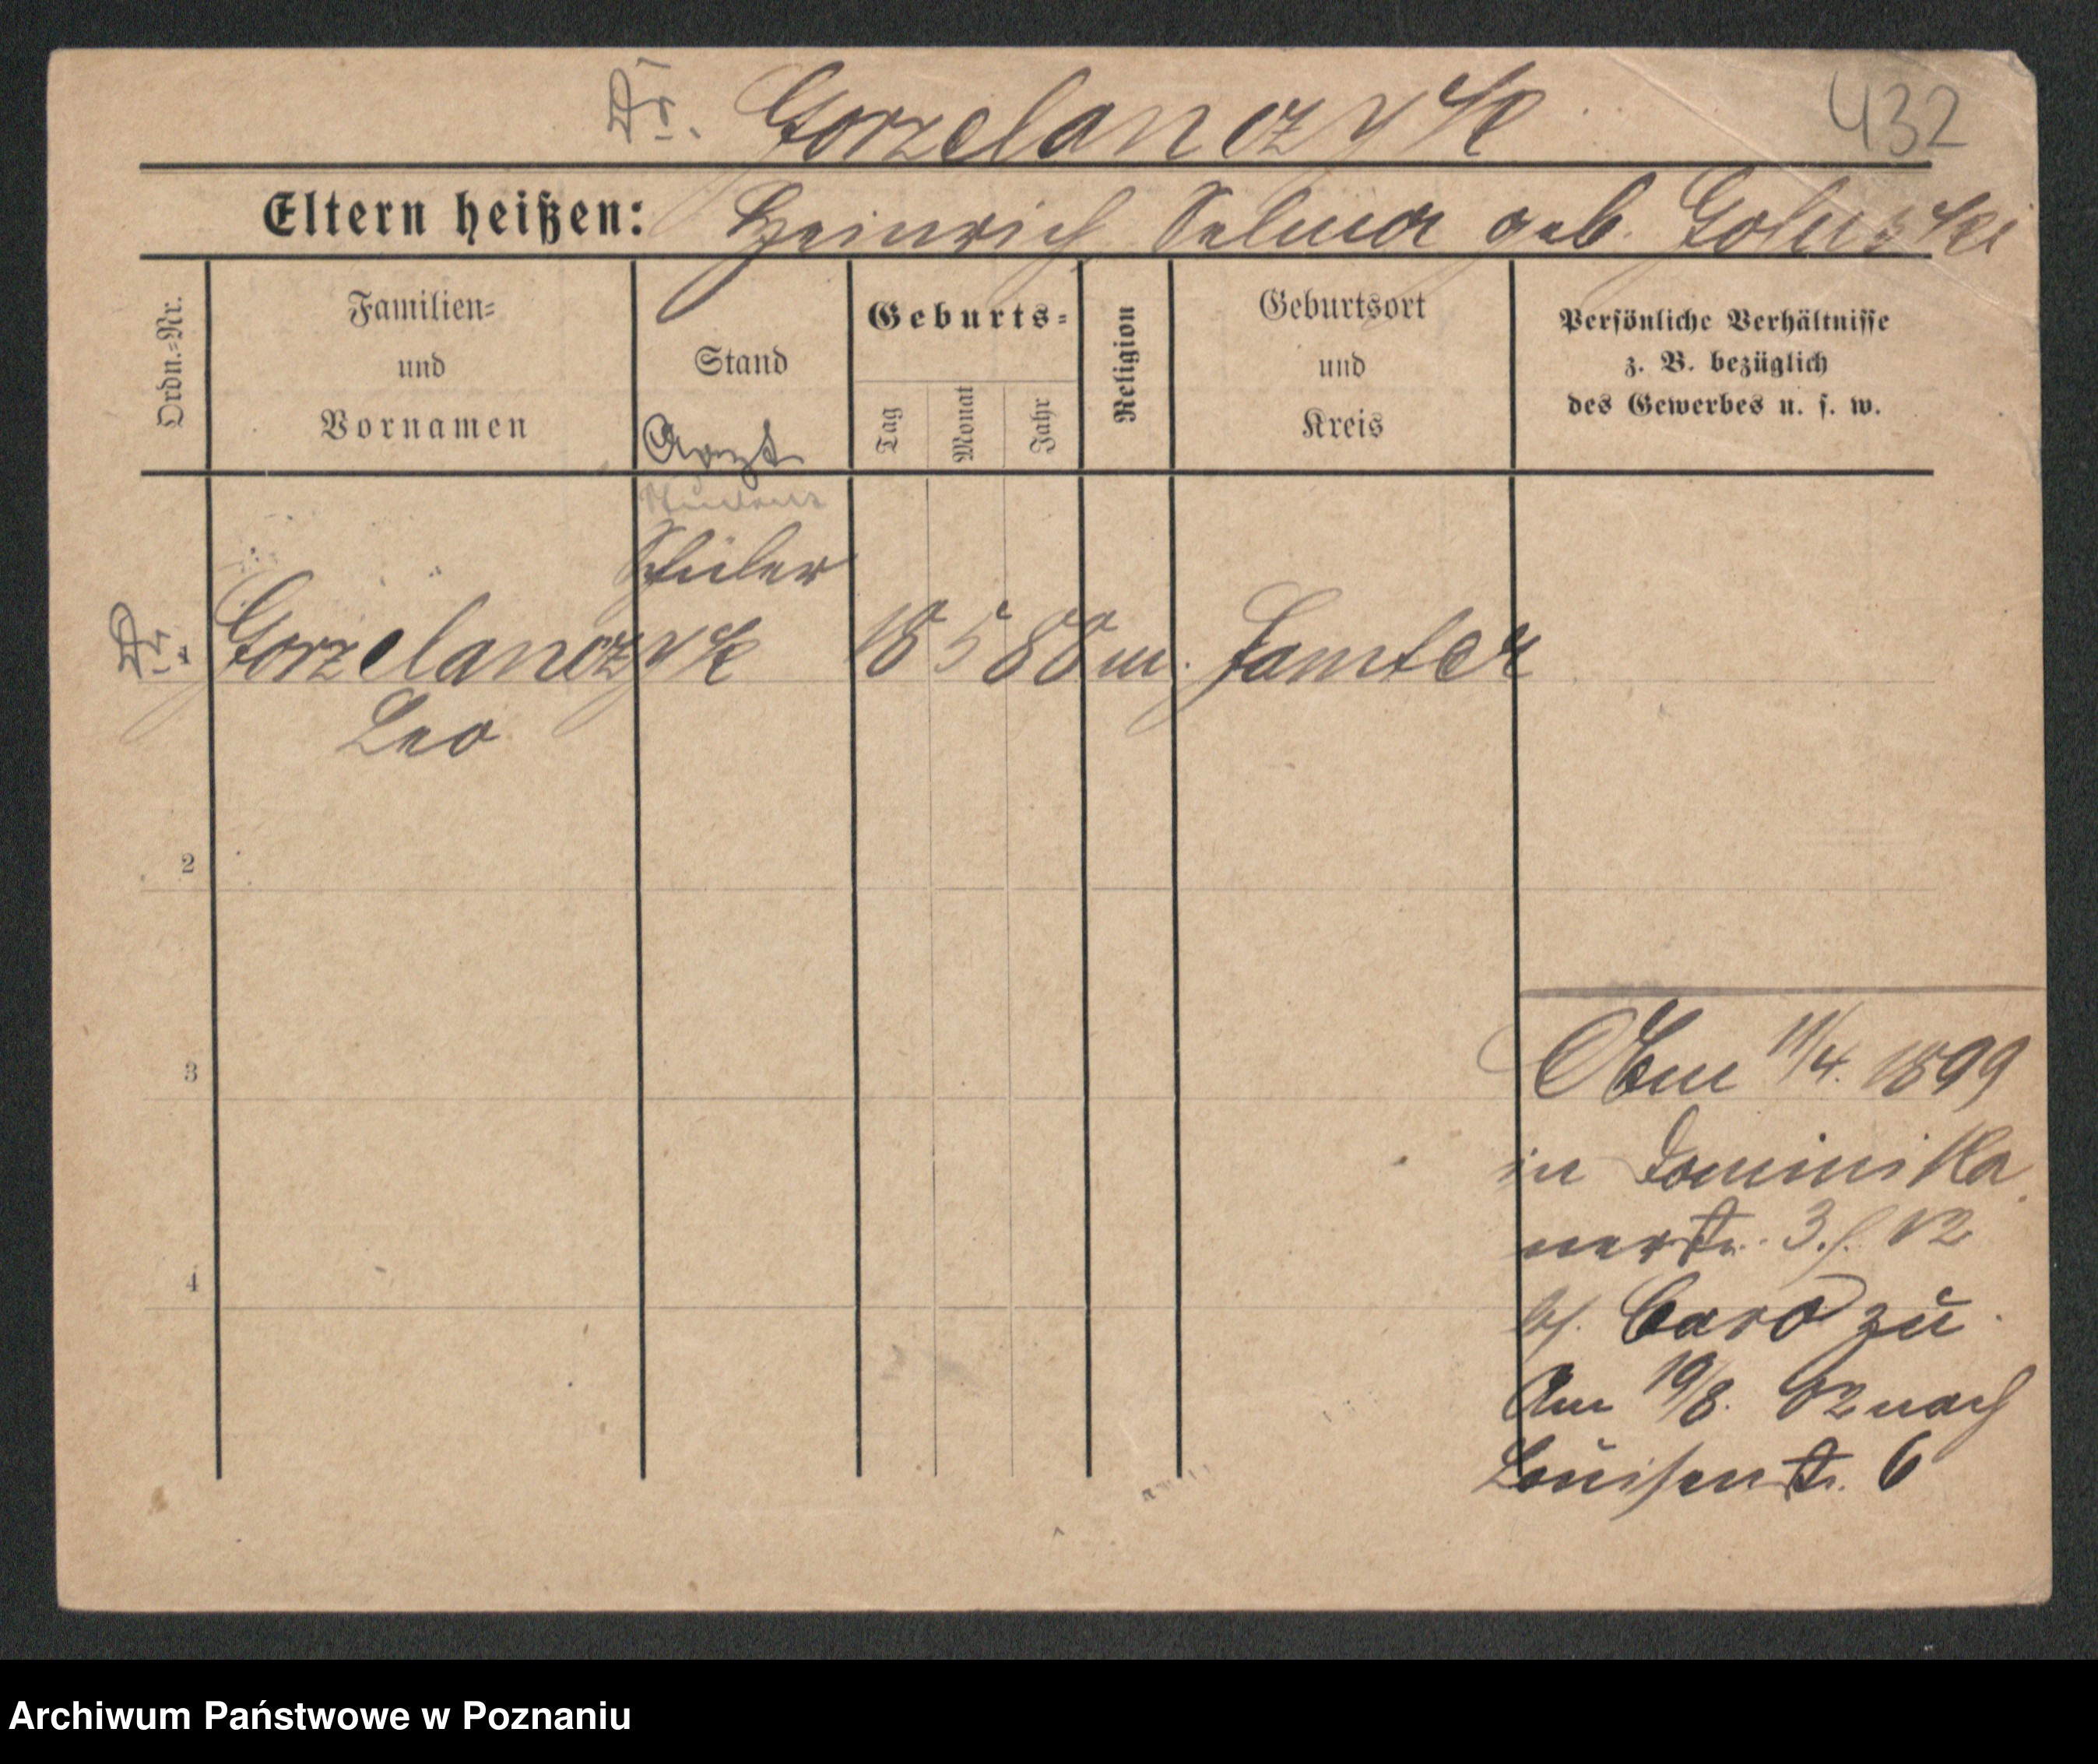 Dr. Gorzelanczyk 432
Eltern heißen: Heinrich Selma geb. Goluski
Ordn.-Nr.
Familien-
und
Vornamen
Stand
Arzt
Geburts-
Tag
Monat
Jahr
Religion
Geburtsort
und
Kreis
Persönliche Verhältnisse
z. B. bezüglich
des Gewerbes u. s. w.
Student
Schüler
Dr. 1 Gorzelanczyk 18 5 88 m. Samter
Leo
2
3
4
11/4. 1899
in Dominika
nerstr. 3. 12
Caro zu
Am 19/8. 02 nach
Louisenstr. 6
Archiwum Państwowe w Poznaniu